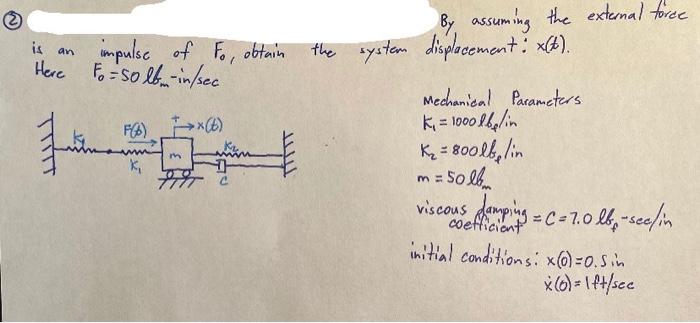 ② By assuming the external force
is an impulse of F₀, obtain the system displacement: x(t).
Here F₀ = 50 lbₘ-in/sec
Mechanical Parameters
K₁ = 1000 lb_f/in
K₂ = 800 lb_f/in
m = 50 lbₘ
viscous damping coefficient = C = 7.0 lb_f-sec/in
initial conditions: x(0) = 0.5 in
ẋ(0) = 1 ft/sec
K₁ F(t) + x(t) K₂
K₁ m
C